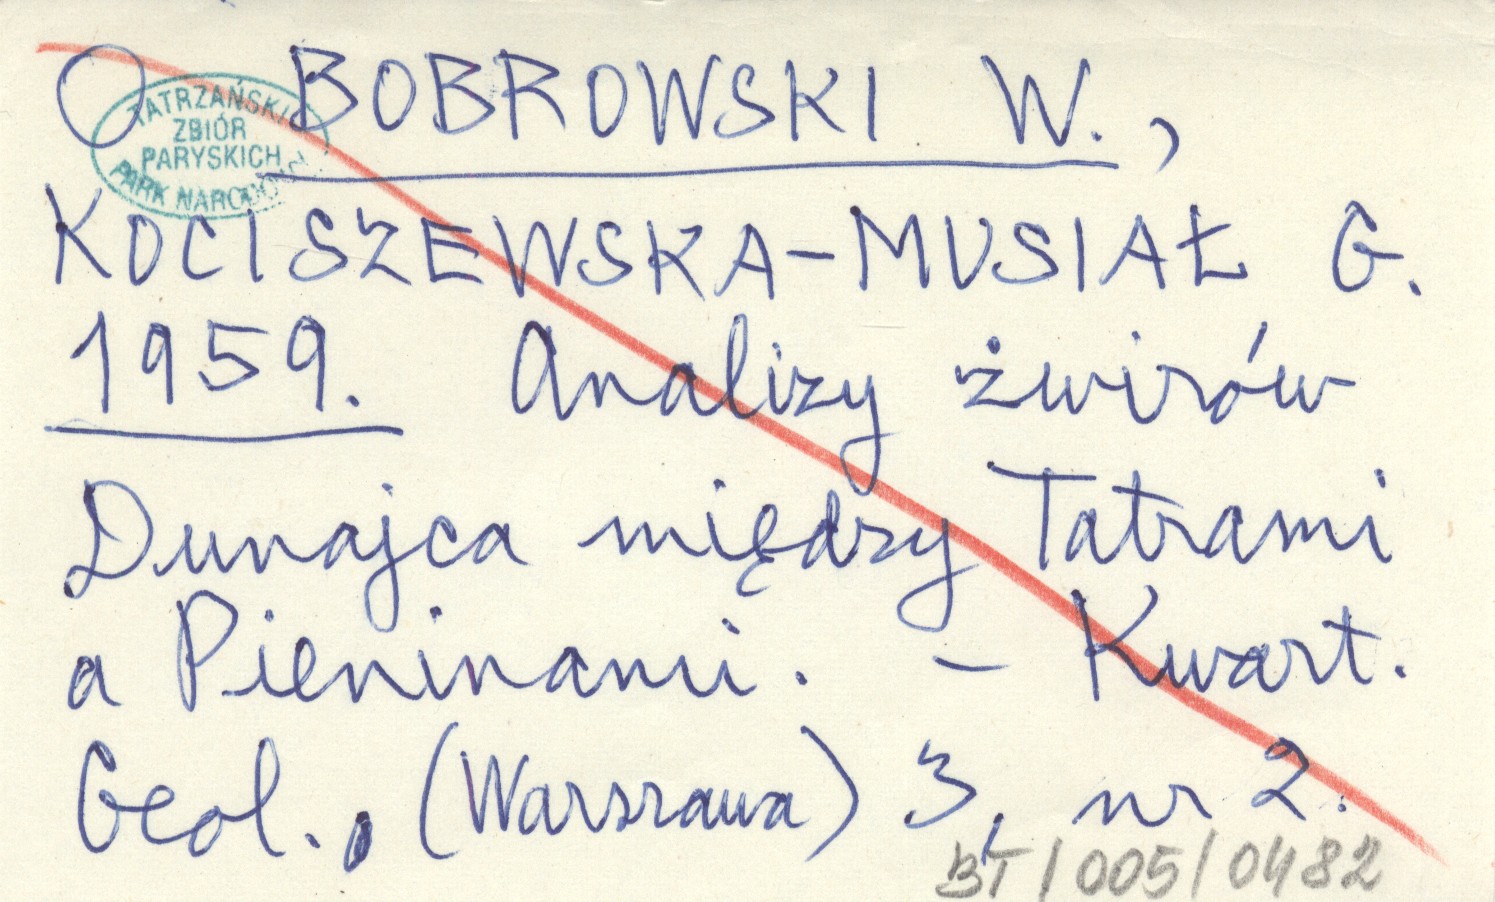 O BOBROWSKI W.,
TATRZAŃSKI
ZBIÓR
PARYSKICH
PARK NARODOWY
KOCISZEWSKA-MUSIAŁ G.
1959. Analizy żwirów
Dunajca między Tatrami
a Pieninami. - Kwart.
Geol., (Warszawa) 3, nr 2.
BT/005/0482